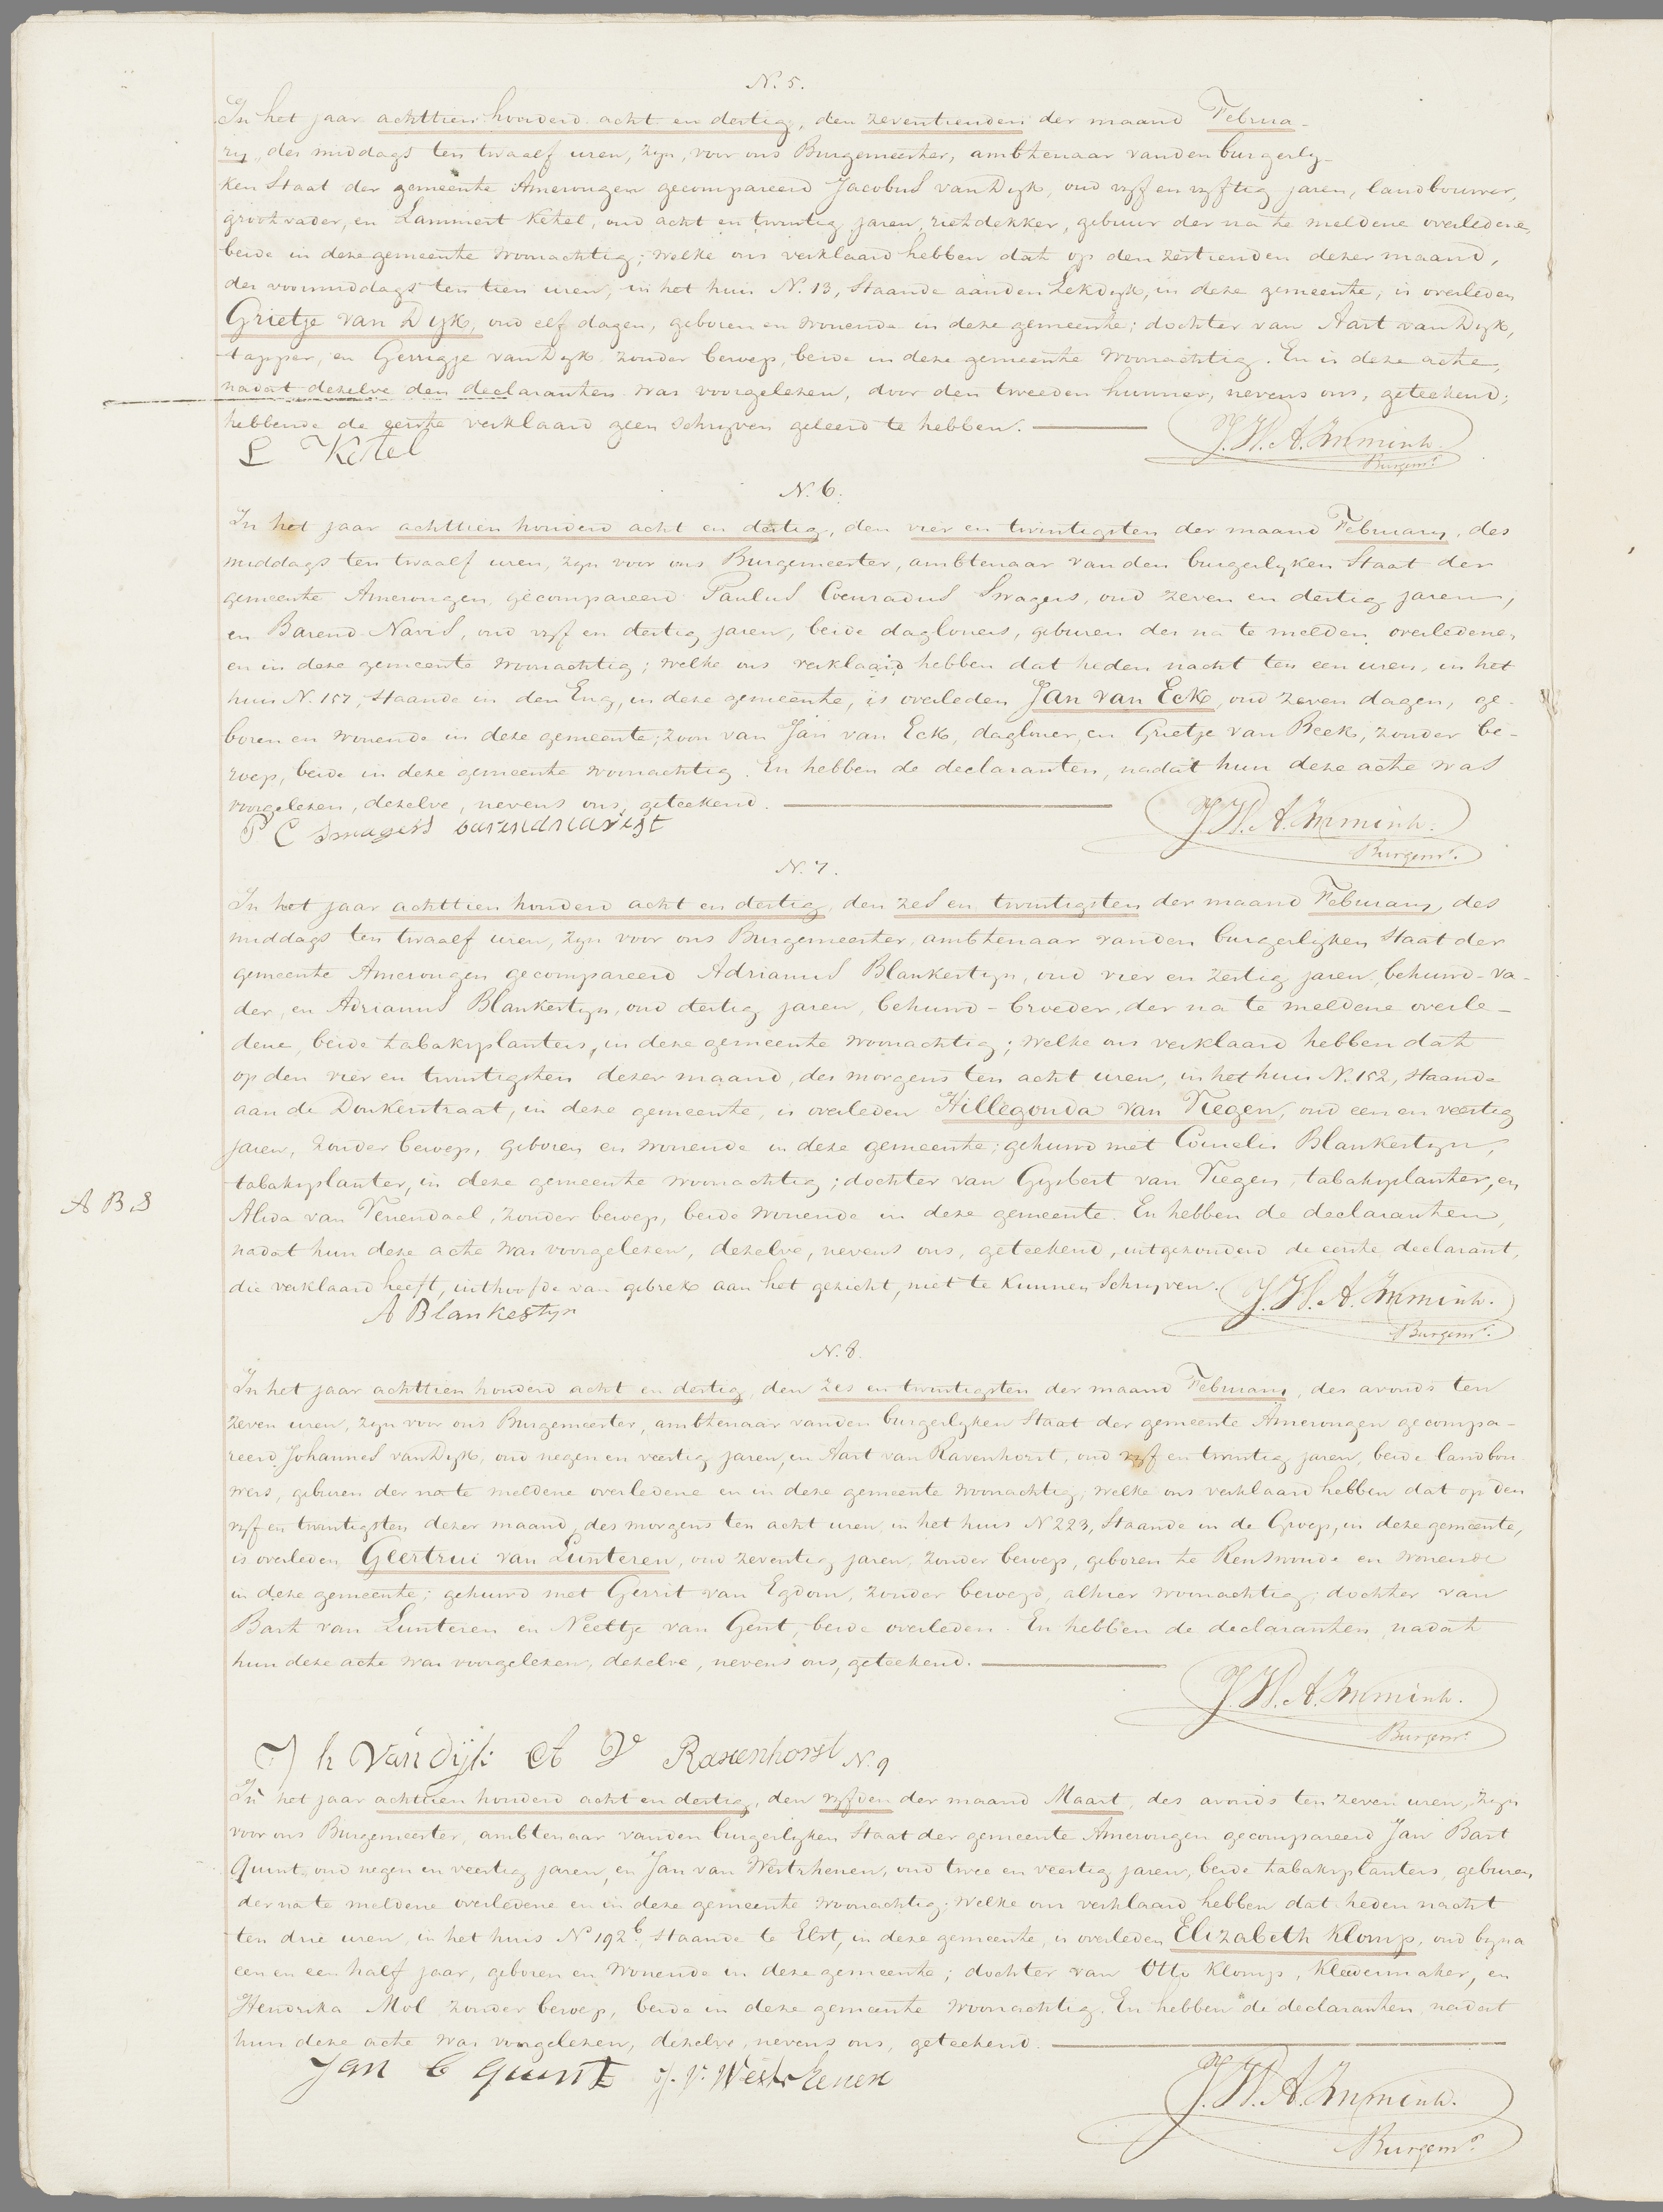 N. 5.
In het jaar achttien honderd acht en dertig, den zeventienden der maand Februa-
rij, des middags ten twaalf uren, zijn, voor ons Burgemeester, ambtenaar van den burgerlij-
ken Staat der gemeente Amerongen gecompareerd Jacobus van Dijk, oud vijf en vijftig jaren, landbouwer,
grootvader, en Lammert Ketel, oud acht en twintig jaren, rietdekker, gebuur der na te meldene overledene,
beide in deze gemeente woonachtig; welke ons verklaard hebben dat op den zestienden dezer maand,
des voormiddags ten tien uren, in het huis N. 13, staande aan den Lekdijk, in deze gemeente, is overleden
Grietje van Dijk, oud elf dagen, geboren en wonende in deze gemeente; dochter van Aart van Dijk,
tapper, en Gerrigje van Dijk zonder beroep, beide in deze gemeente woonachtig. En is deze acte,
nadat dezelve den declaranten was voorgelezen, door den tweeden hunner, nevens ons, geteekend;
hebbende de eerste verklaard geen schrijven geleerd te hebben.
L Ketel
J. H. A. Immink.
Burgemr.
N. 6.
In het jaar achttien honderd acht en dertig, den vier en twintigsten der maand Februarij, des
middags ten twaalf uren, zijn voor ons Burgemeester, ambtenaar van den burgerlijken Staat der
gemeente Amerongen, gecompareerd Paulus Coenradus Smagers, oud zeven en dertig jaren,
en Barend Navis, oud vijf en dertig jaren, beide dagloners, geburen der na te melden overledene,
en in deze gemeente woonachtig; welke ons verklaard hebben dat heden nacht ten een uren, in het
huis N. 157, staande in den Eng, in deze gemeente, is overleden Jan van Eck, oud zeven dagen, ge-
boren en wonende in deze gemeente; zoon van Jan van Eck, dagloner, en Grietje van Beek, zonder be-
roep, beide in deze gemeente woonachtig. En hebben de declaranten, nadat hun deze acte was
voorgelezen, dezelve, nevens ons, geteekend.
P C Smagers barendnavist
J. H. A. Immink.
Burgemr.
N. 7.
In het jaar achttien honderd acht en dertig, den zes en twintigsten der maand Februarij, des
middags ten twaalf uren, zijn voor ons Burgemeester, ambtenaar van den burgerlijken Staat der
gemeente Amerongen gecompareerd Adrianus Blankestijn, oud vier en zestig jaren, behuwd-va-
der, en Adrianus Blankestijn, oud dertig jaren, behuwd-broeder, der na te meldene overle-
dene, beide tabaksplanters, in deze gemeente woonachtig; welke ons verklaard hebben dat
op den vier en twintigsten dezer maand, des morgens ten acht uren, in het huis N. 152, staande
aan de Donkerstraat, in deze gemeente, is overleden Hillegonda van Viegen, oud een en veertig
jaren, zonder beroep, geboren en wonende in deze gemeente; gehuwd met Cornelis Blankestijn,
tabaksplanter, in deze gemeente woonachtig; dochter van Gijsbert van Viegen, tabaksplanter, en
A B S
Alida van Venendaal, zonder beroep, beide wonende in deze gemeente. En hebben de declaranten,
nadat hun deze acte was voorgelezen, dezelve, nevens ons, geteekend, uitgezonderd de eerste declarant,
die verklaard heeft, uithoofde van gebrek aan het gezicht, niet te kunnen schrijven.
A Blankestijn
J. H. A. Immink.
Burgemr.
N. 8.
In het jaar achttien honderd acht en dertig, den zes en twintigsten der maand Februarij, des avonds ten
zeven uren, zijn voor ons Burgemeester, ambtenaar van den burgerlijken Staat der gemeente Amerongen gecompa-
reerd Johannes van Dijk, oud negen en veertig jaren, en Aart van Ravenhorst, oud vijf en twintig jaren, beide landbou
wers, geburen der na te meldene overledene en in deze gemeente woonachtig, welke ons verklaard hebben dat op den
vijf en twintigsten dezer maand, des morgens ten acht uren, in het huis N 223, staande in de Groep, in deze gemeente,
is overleden Geertrui van Lunteren, oud zeventig jaren, zonder beroep, geboren te Renswoude en wonende
in deze gemeente; gehuwd met Gerrit van Egdom, zonder beroep, alhier woonachtig; dochter van
Bart van Lunteren en Neeltje van Gent, beide overleden. En hebben de declaranten, nadat
hun deze acte was voorgelezen, dezelve, nevens ons, geteekend.
J. H. A. Immink.
Burgemr.
J h van dijk A V Ravenhorst
N. 9
In het jaar achttien honderd acht en dertig, den vijfden der maand Maart, des avonds ten zeven uren, zijn
voor ons Burgemeester, ambtenaar van den burgerlijken Staat der gemeente Amerongen gecompareerd Jan Bart
Quint, oud negen en veertig jaren, en Jan van Westrhenen, oud twee en veertig jaren, beide tabaksplanters, geburen
der na te meldene overledene en in deze gemeente woonachtig; welke ons verklaard hebben dat heden nacht
ten drie uren, in het huis N 192b, staande te Elst, in deze gemeente, is overleden Elizabeth Klomp, oud bijna
een en een half jaar, geboren en wonende in deze gemeente; dochter van Otto Klomp, kleedermaker, en
Hendrika Mol zonder beroep, beide in deze gemeente woonachtig. En hebben de declaranten, nadat
hun deze acte was voorgelezen, dezelve, nevens ons, geteekend.
Jan B Quint J. V. Westrhenen
J. H. A. Immink.
Burgemr.